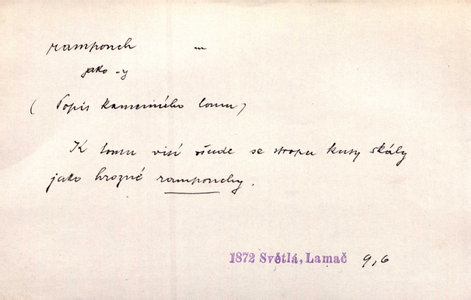 ramponch m
jako -y
(Popis kamenného lomu)
K tomu visí všude se stropu kusy skály
jako hrozné ramponchy.
1872 Světlá, Lamač 9,6